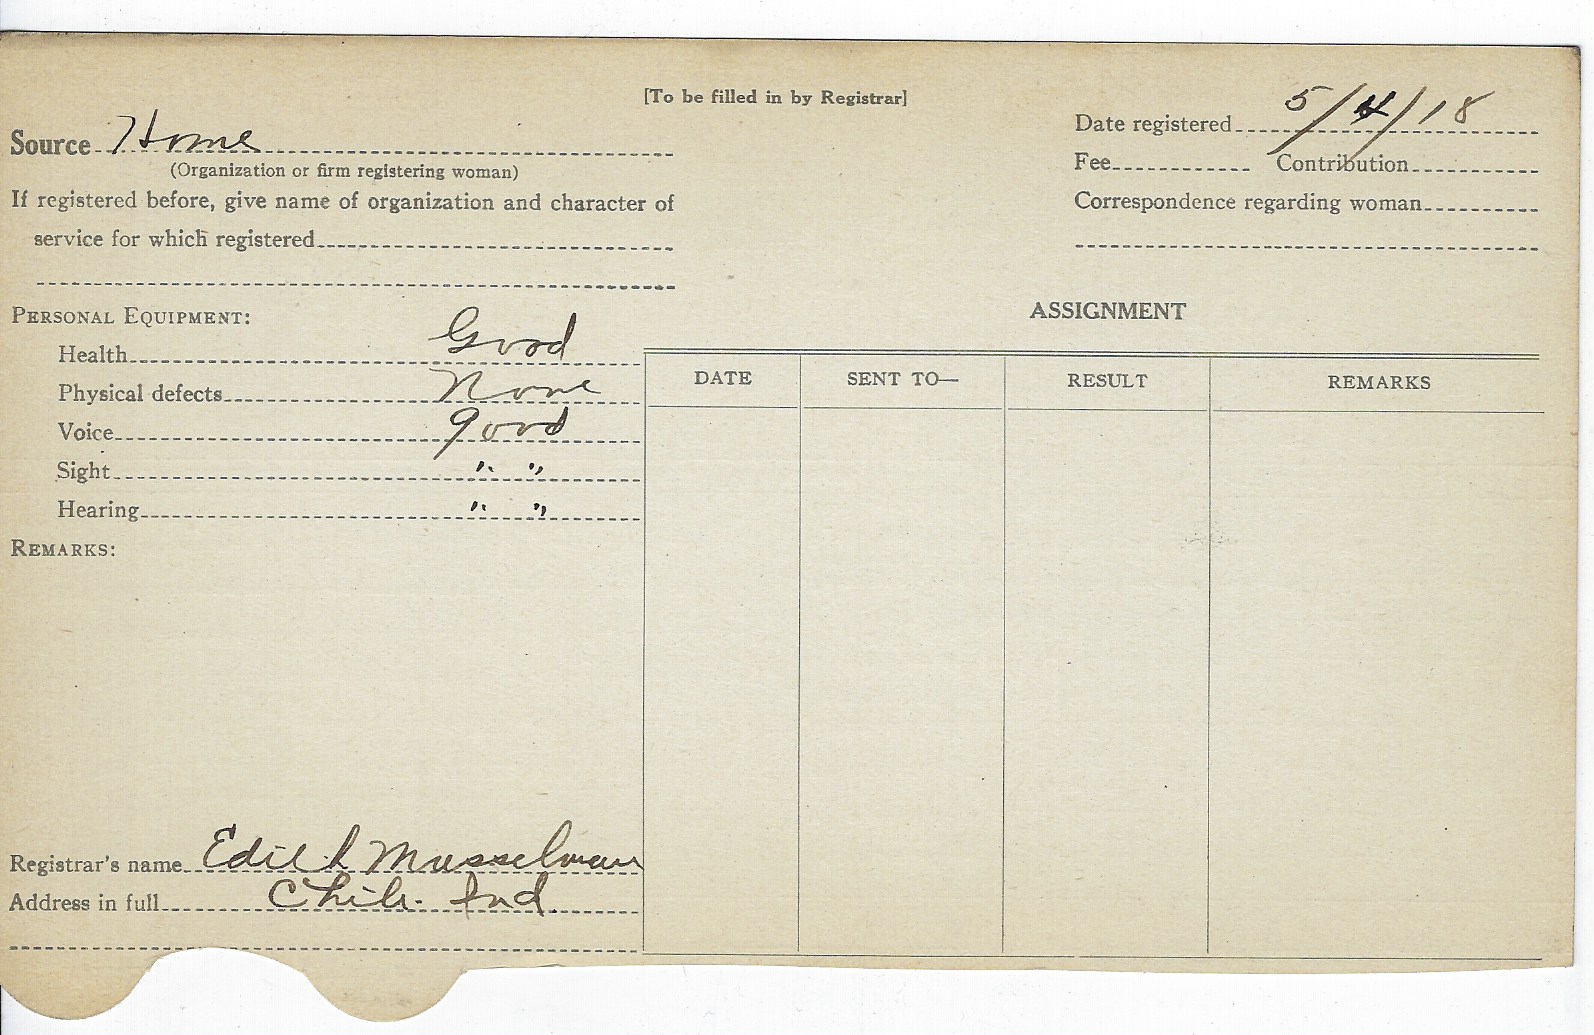 [To be filled in by Registrar]
Source Home
(Organization or firm registering woman)
If registered before, give name of organization and character of
service for which registered
Date registered 5/4/18
Fee Contribution
Correspondence regarding woman
PERSONAL EQUIPMENT:
Health Good
Physical defects None
Voice good
Sight " "
Hearing " "
REMARKS:
Registrar's name Edith Musselman
Address in full Chili. Ind.
ASSIGNMENT
DATE SENT TO— RESULT REMARKS